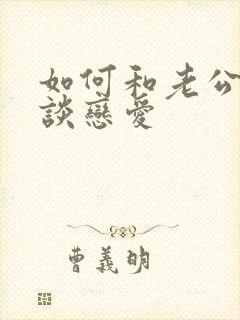 如何和老公
談戀愛
曹義明